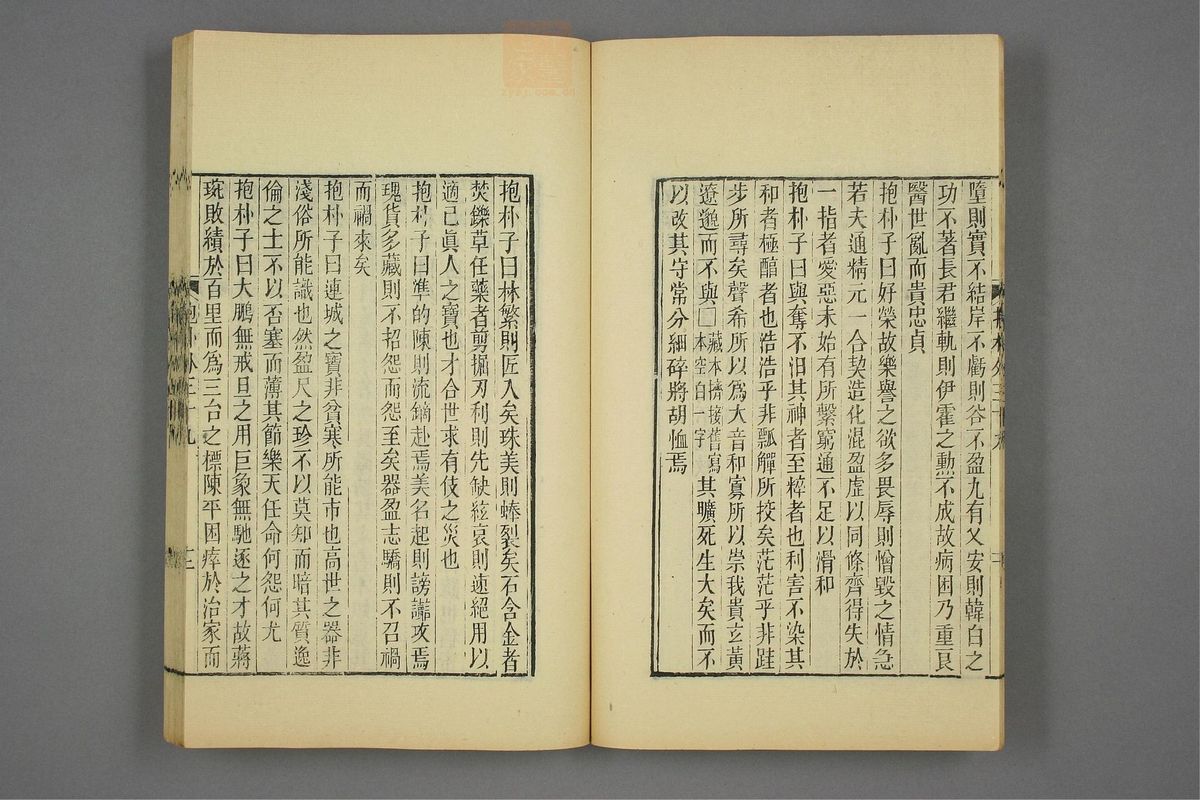 墮則實不結岸不虧則谷不盈九有乂安則韓白之
功不著長君繼軌則伊霍之勲不成故病困乃重良
醫世亂而貴忠貞
抱朴子曰好榮故樂譽之欲多畏辱則憎毀之情急
若夫通精元一合契造化混盈虛以同條齊得失於
一指者愛惡未始有所繫窮通不足以滑和
抱朴子曰與奪不汨其神者至粹者也利害不染其
和者極醇者也浩浩乎非瓢觶所挍矣茫茫乎非跬
步所尋矣聲希所以為大音和寡所以崇我貴玄黃
遼邈而不與□藏本擠接舊寫本空白一字其曠死生大矣而不
以改其守常分細碎將胡恤焉
抱朴子曰林繁則匠入矣珠美則蜯裂矣石含金者
焚鑠草任藥者剪掘刃利則先缺絃哀則速絕用以
適己眞人之寶也才合世求有伎之災也
抱朴子曰準的陳則流鏑赴焉美名起則謗讟攻焉
瑰貨多藏則不招怨而怨至矣器盈志驕則不召禍
而禍來矣
抱朴子曰連城之寶非貧寒所能市也高世之器非
淺俗所能識也然盈尺之珍不以莫知而暗其質逸
倫之士不以否塞而薄其節樂天任命何怨何尤
抱朴子曰大鵬無戒旦之用巨象無馳逐之才故蔣
琬敗績於百里而為三台之標陳平困瘁於治家而
抱朴外三十九